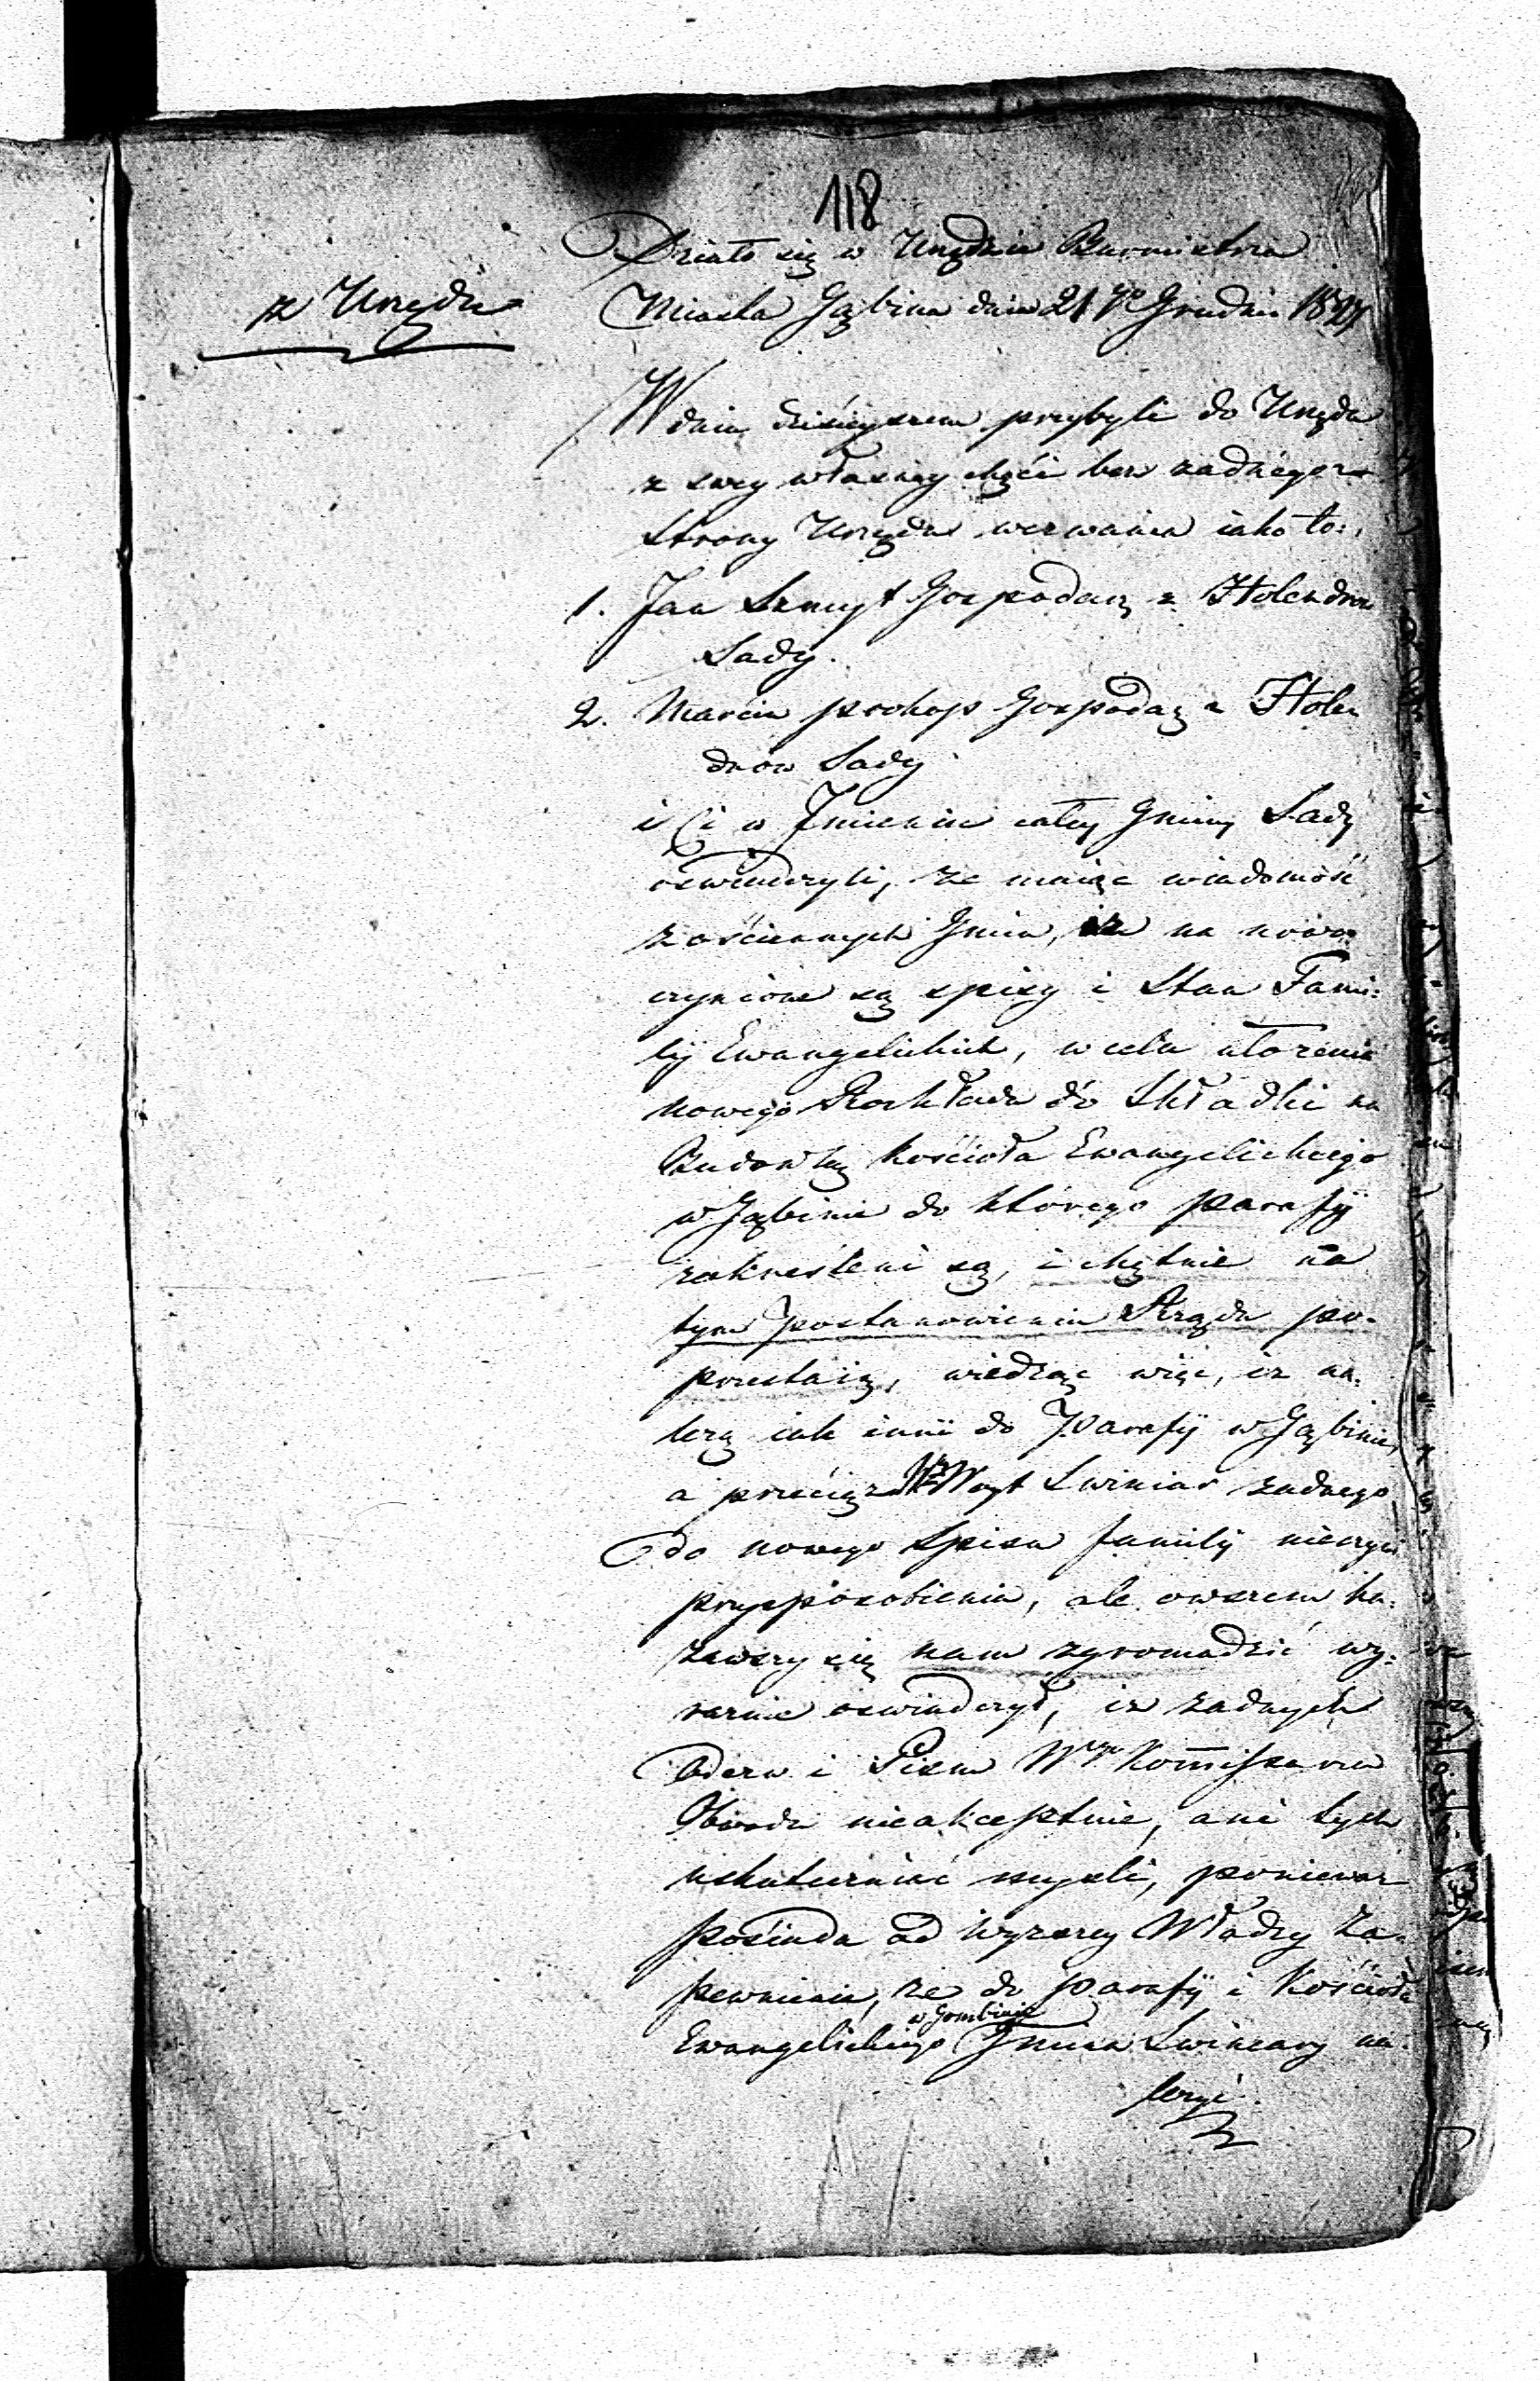 118
Działo się w Urzędzie Burmistrza
z Urzędu
Miasta Gąbina dnia 21go Grudnia 1827
W dniu dzisieyszem przybyli do Urzędu
z swey własney chęci bez zadnego z
strony Urzędu wezwania iako to:
1. Jan Szmyt Gospodarz z Holendrow
Sady.
2. Marcin prokop Gospodaz z Holen
drow Sady
i Ci w Jmieniu całey Gminy Sady
oswiadczyli, ze maiąc wiadomość
z ościennych Gmin, iz na nowo
czynione są spisy i Stan Fami-
lij Ewangelickich, w celu ułozenia
nowego Rozkładu do Składki na
Budowlę kościoła Ewangelickiego
w Gąbinie do ktorego parafij
zakresleni są, i chętnie na
tym postanowieniu Rządu po-
przestaią, wiedząc więc, iz na-
lezą iak inni do Parafij w Gąbinie,
a przeciez Woyt Swiniar zadnego
do nowego Spisu familij nieczyni
przysposobienia, ale owszem ka-
zawszy się nam zgromadzić wy-
raznie oswiadczył, iz zadnych
Odezw i Pism Wgo Kommissarza
Obwodu nieakceptuie, ani tych
uskuteczniać mysli, poniewaz
posiada od Wyzszey Władzy Za-
pewnienie, ze do parafij i Kościoła
w Gombinie
Ewangelickiego Gmina Swiniary na-
lezyć